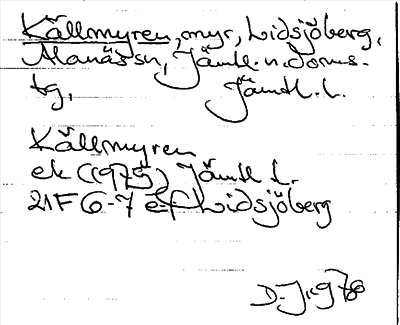 Källmyren, myr, Lidsjöberg,
Alanäs sn, Jämtl. n. doms-
tg, Jämtl. l.
Källmyren
ek (1975) Jämtl L.
21F 6-7 e-f Lidsjöberg
D. J. 1978